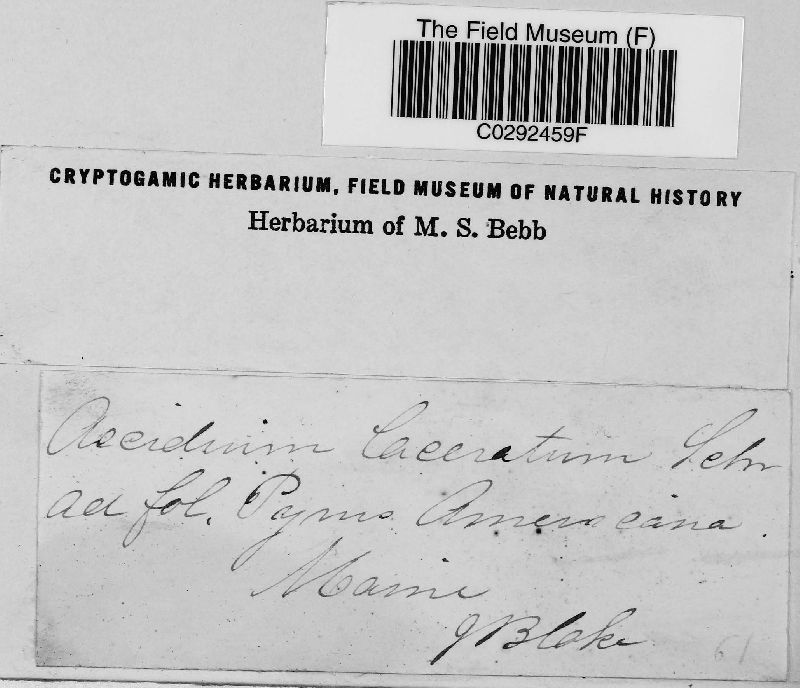 The Field Museum (F)
C0292459F
CRYPTOGAMIC HERBARIUM, FIELD MUSEUM OF NATURAL HISTORY
Herbarium of M. S. Bebb
Aecidium laceratum Schw
ad fol. Pyrus Americana.
Maine
J Blake
61